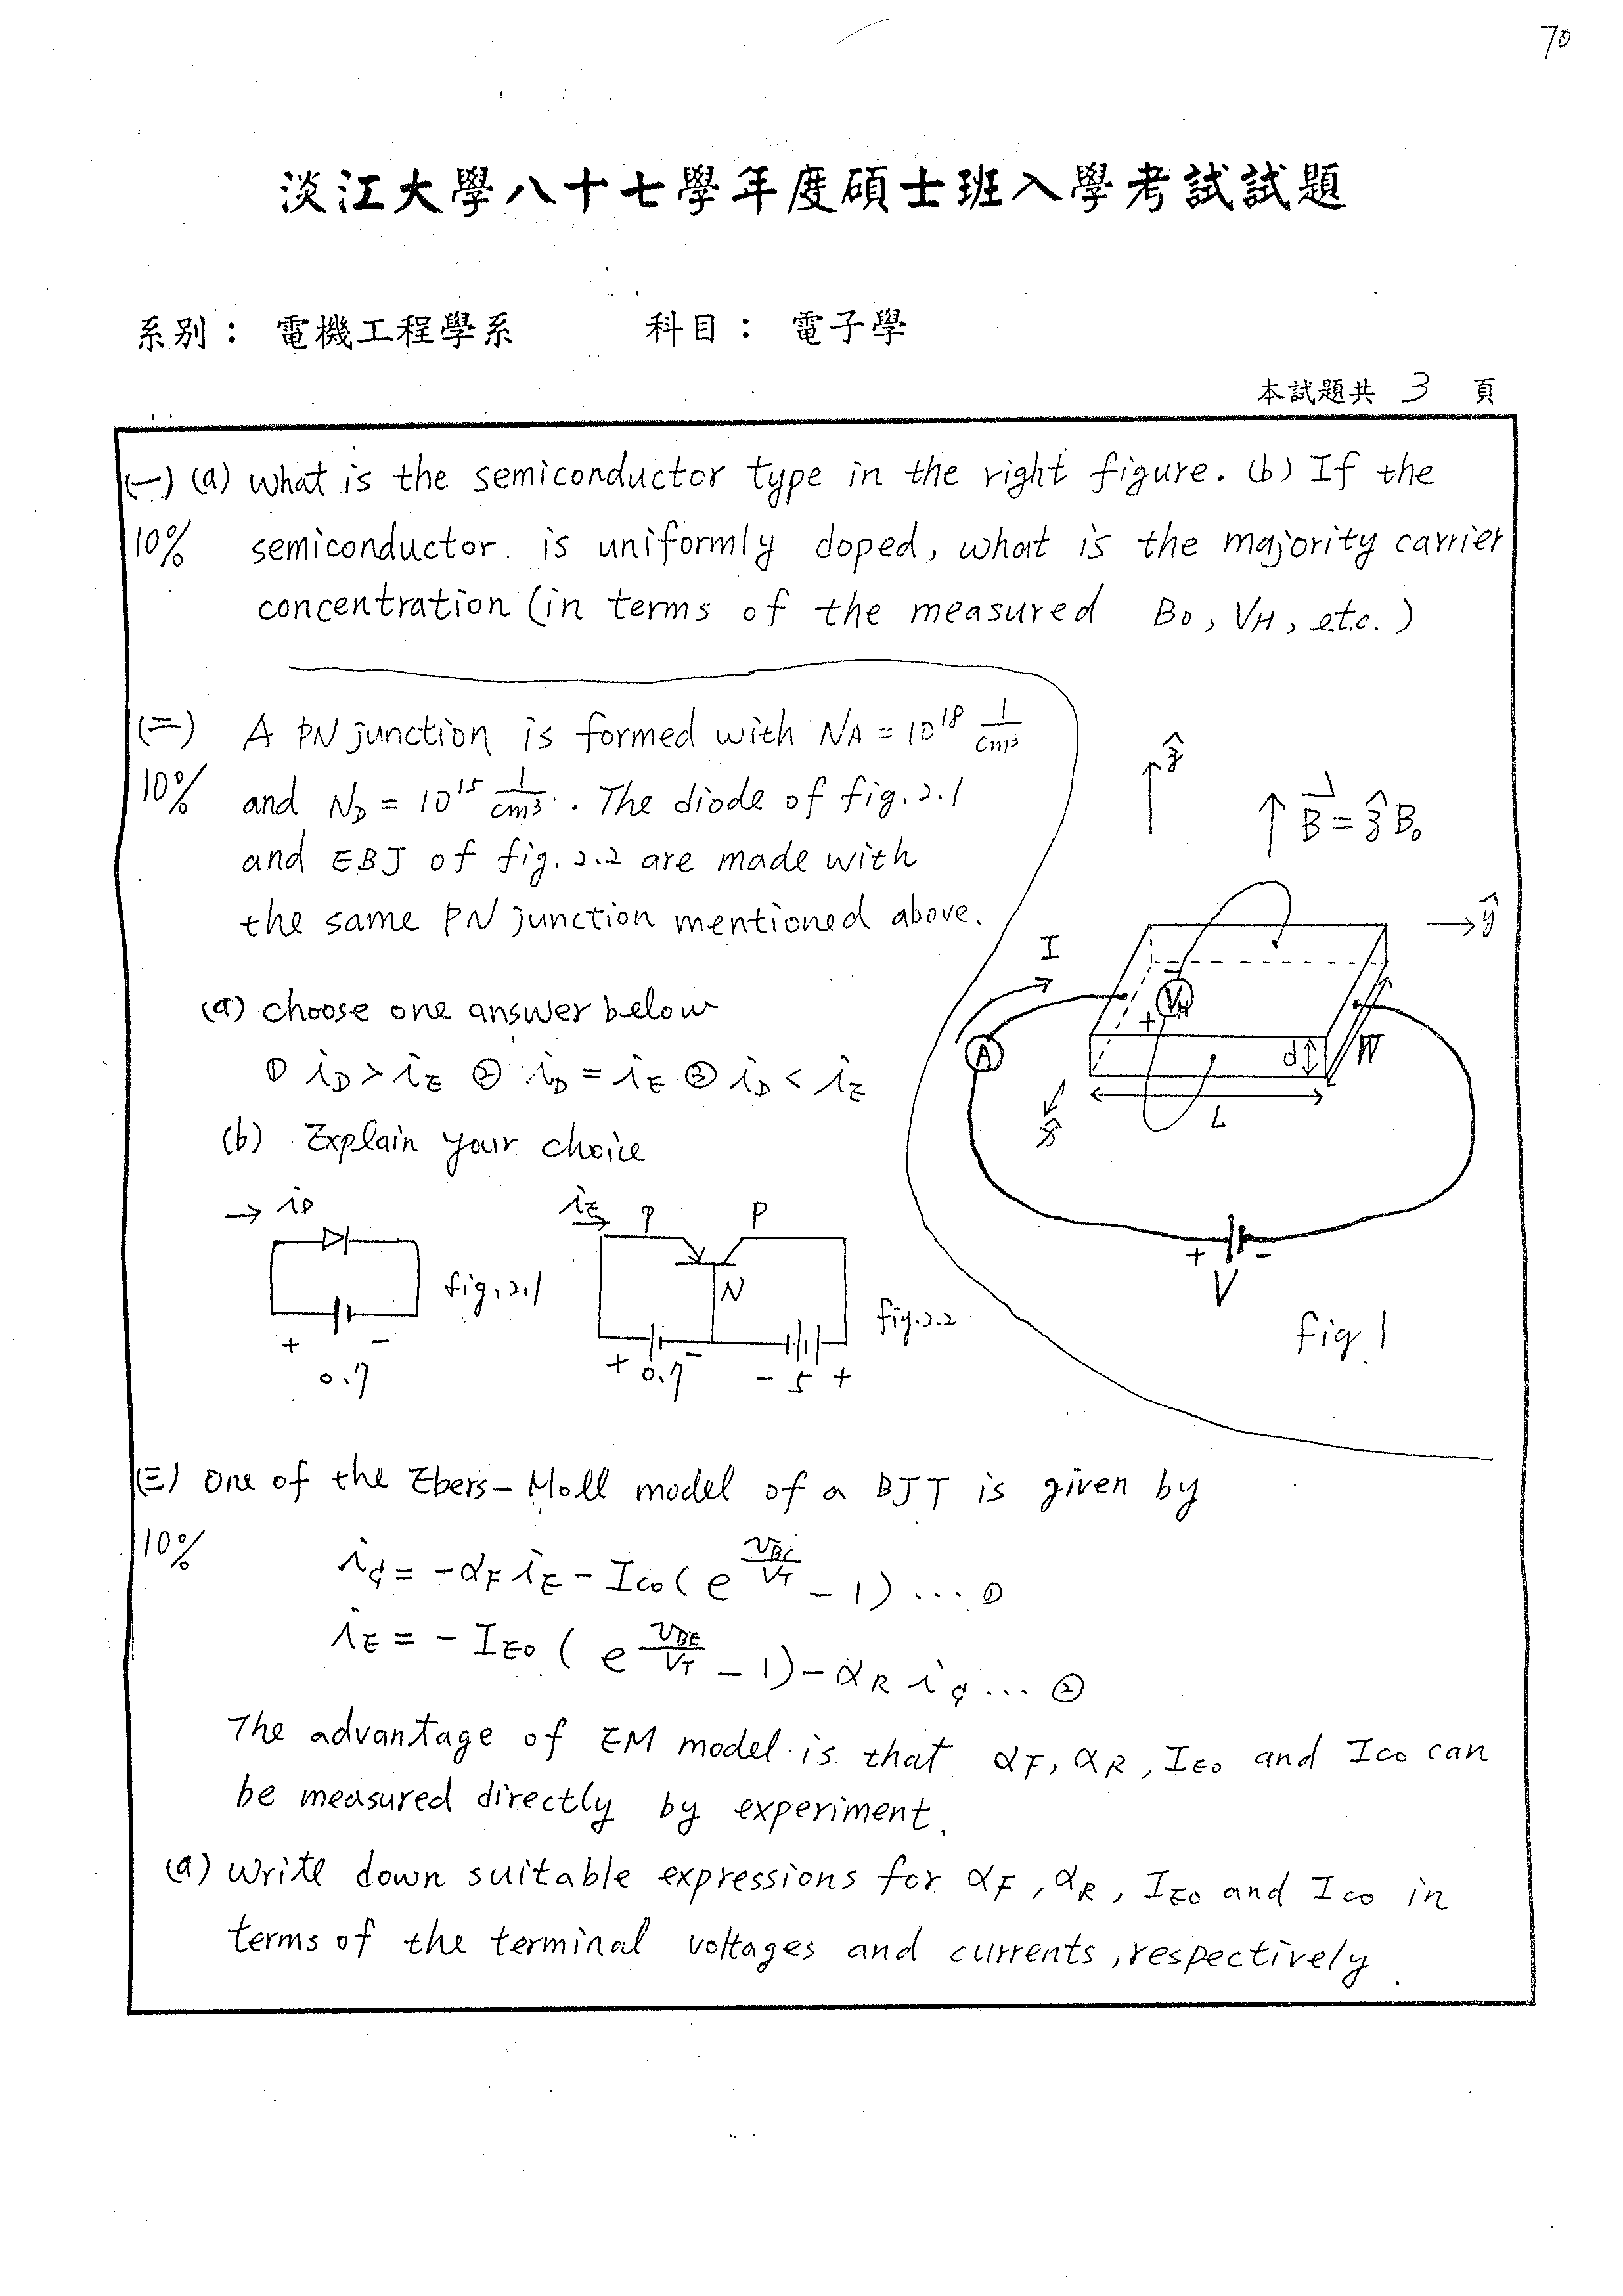 70
淡江大學八十七學年度碩士班入學考試試題
系別： 電機工程學系 科目： 電子學
本試題共 3 頁
(一) (a) what is the semiconductor type in the right figure. (b) If the
10% semiconductor is uniformly doped, what is the majority carrier
concentration (in terms of the measured B₀, V_H, etc.)
(二) A PN junction is formed with N_A = 10¹⁸ 1/cm³
10% and N_D = 10¹⁵ 1/cm³. The diode of fig. 2.1
and EBJ of fig. 2.2 are made with
the same PN junction mentioned above.
(a) choose one answer below
① i_D > i_E ② i_D = i_E ③ i_D < i_E
(b) Explain your choice
→ i_D
fig. 2.1
+ -
0.7
i_E P P
N
fig. 2.2
+ 0.7 - - 5 +
ẑ
B = ẑ B₀
ŷ
I
V_H
+ -
A
d W
L
x̂
+ -
V
fig 1
(三) One of the Ebers-Moll model of a BJT is given by
10% i_C = -α_F i_E - I_CO ( e^(v_BC/V_T) - 1 ) ... ①
i_E = - I_EO ( e^(v_BE/V_T) - 1) - α_R i_C ... ②
The advantage of EM model is that α_F, α_R, I_EO and I_CO can
be measured directly by experiment.
(a) Write down suitable expressions for α_F, α_R, I_EO and I_CO in
terms of the terminal voltages and currents, respectively.